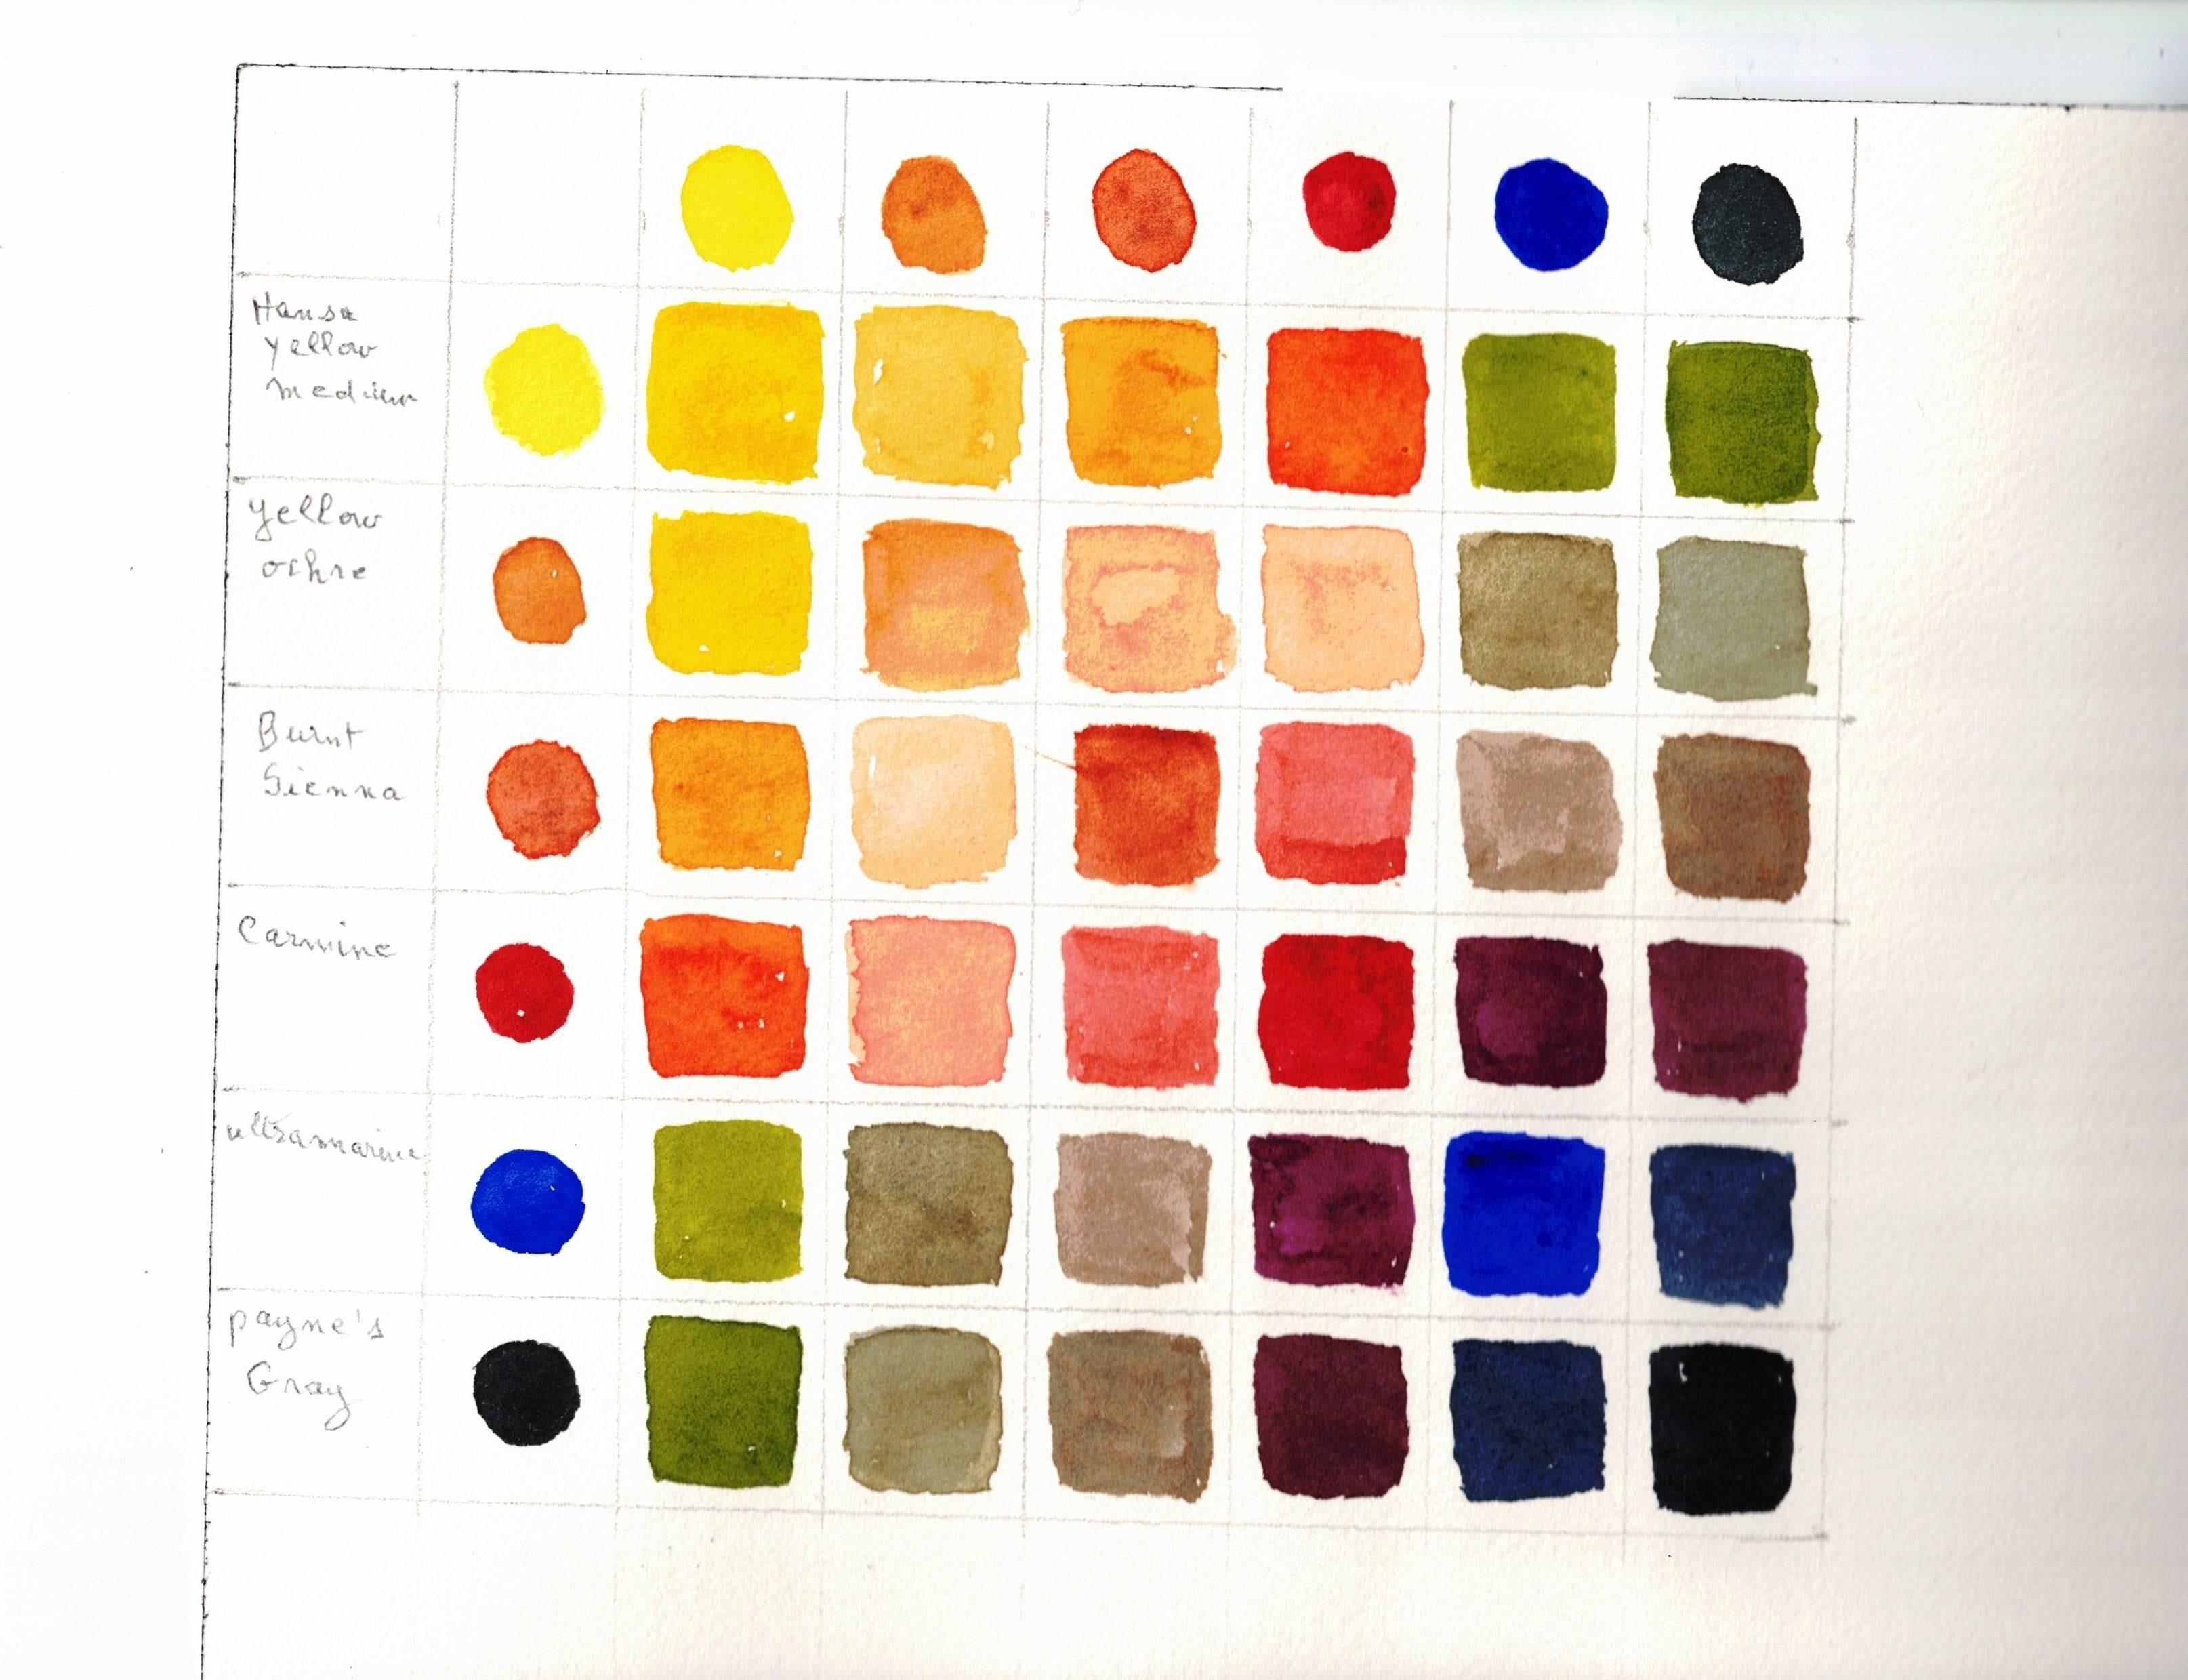 Hansa
yellow
medium
yellow
ochre
Burnt
Sienna
Carmine
ultramarine
payne's
Gray